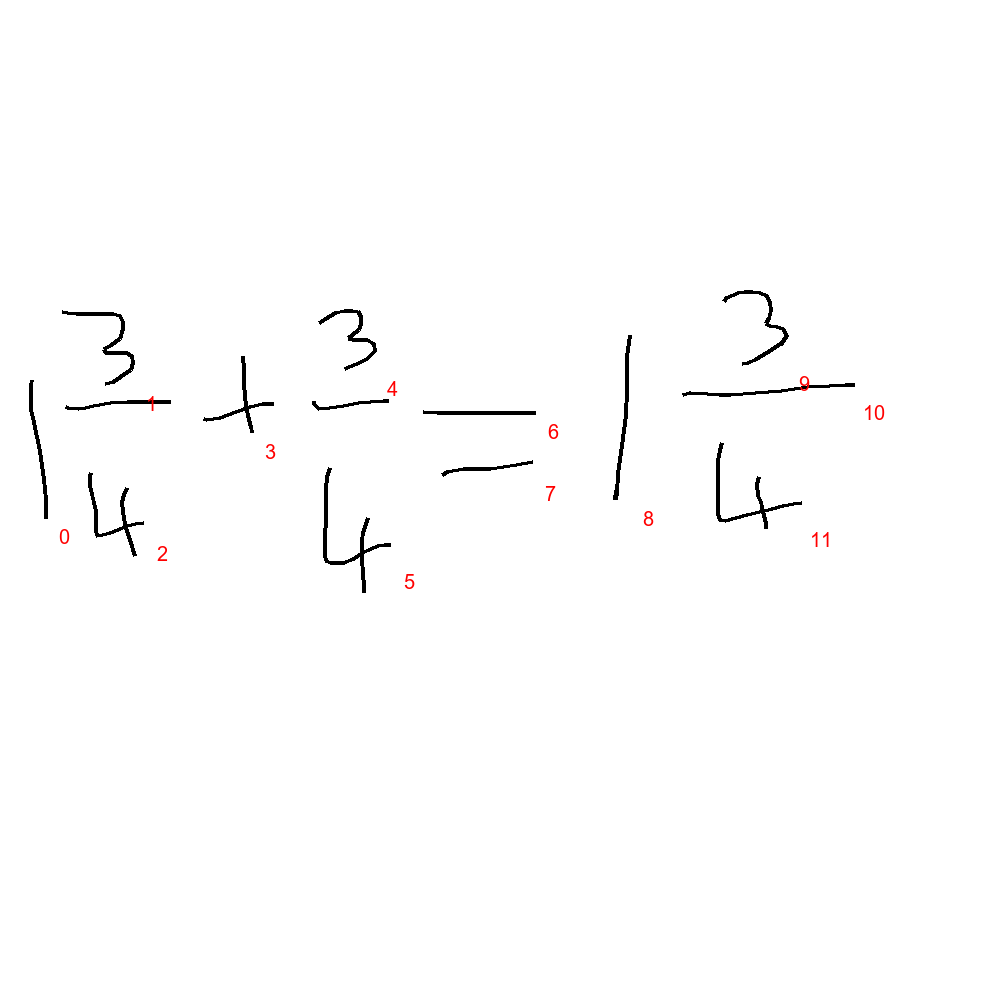 1 3/4 + 3/4 = 1 3/4
0 1 2 3 4 5 6 7 8 9 10 11